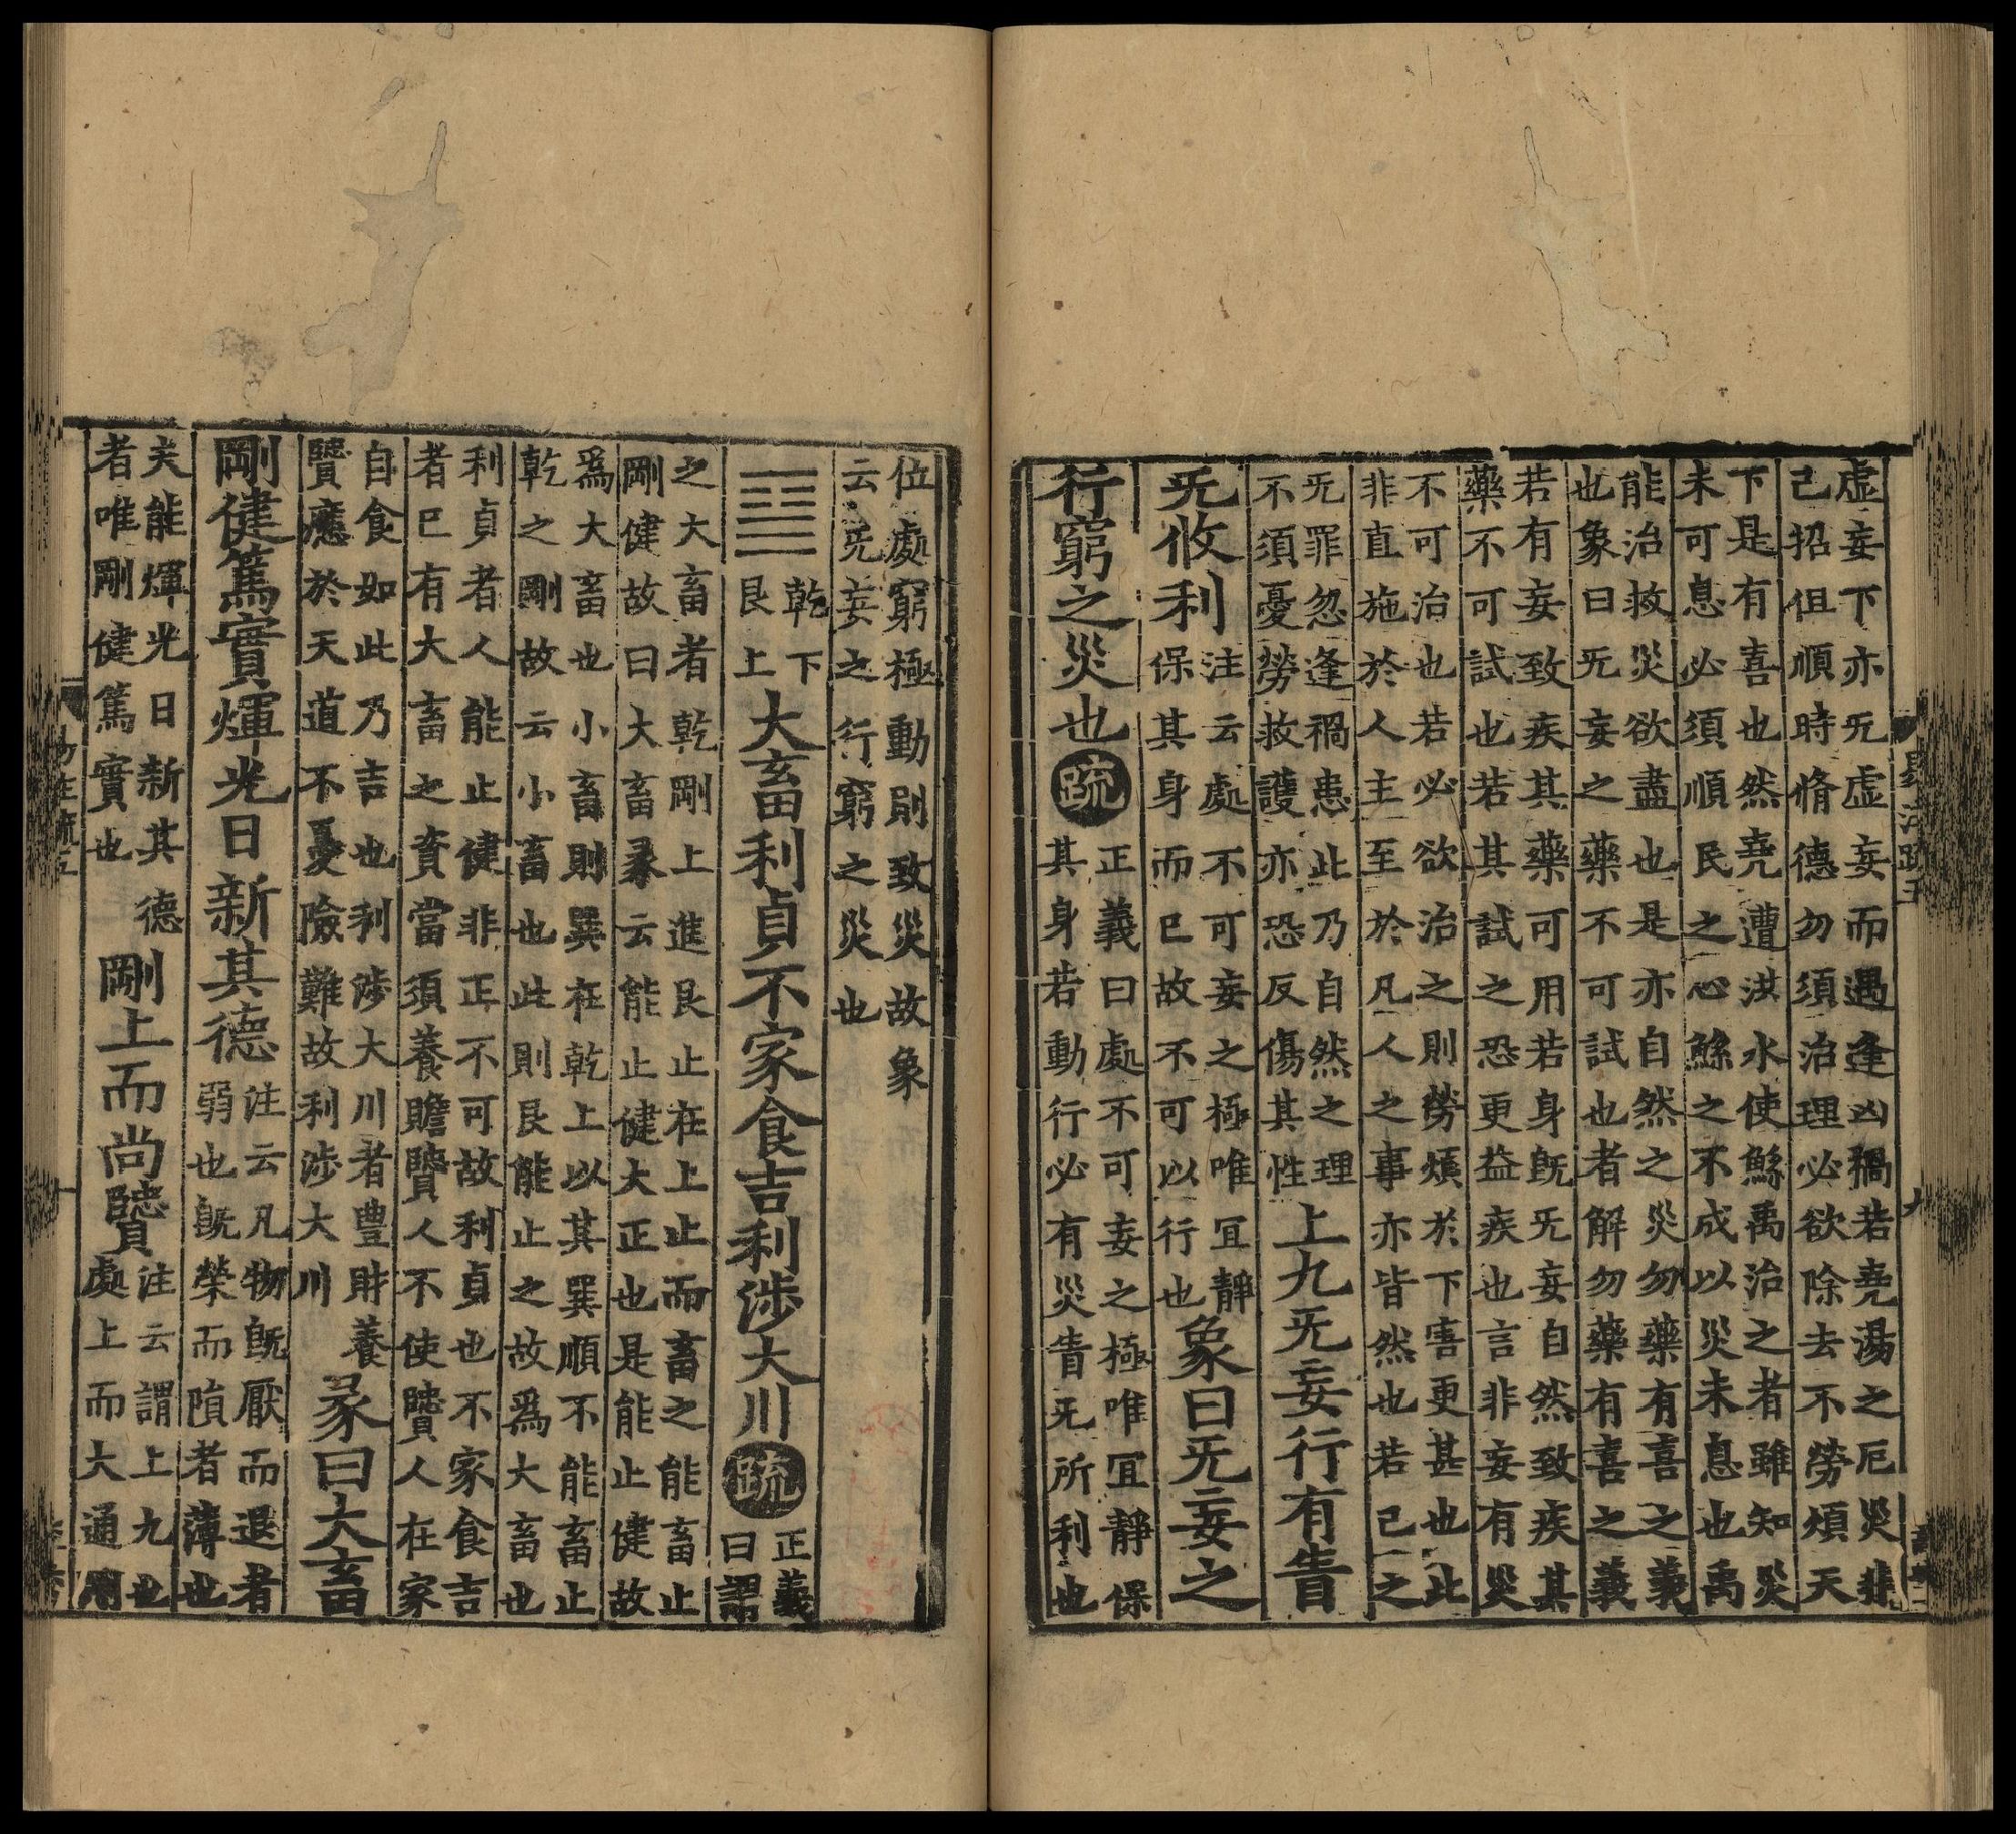 虛妄下亦旡虛妄而遇逢凶禍若堯湯之厄災非
己招但順時脩德勿須治理必欲除去不勞煩天
下是有喜也然堯遭洪水使鯀禹治之者雖知災
未可息必須順民之心鯀之不成以災未息也禹
能治救災欲盡也是亦自然之災勿藥有喜之義
也象曰旡妄之藥不可試也者解勿藥有喜之義
若有妄致疾其藥可用若身旣旡妄自然致疾其
藥不可試也若其試之恐更益疾也言非妄有災
不可治也若必欲治之則勞煩於下害更甚也此
非直施於人主至於凡人之事亦皆然也若己之
旡罪忽逢禍患此乃自然之理
不須憂勞救護亦恐反傷其性
上九旡妄行有眚
旡攸利
注云處不可妄之極唯宜靜
保其身而已故不可以行也
象曰旡妄之
行窮之災也
疏
正義曰處不可妄之極唯宜靜保
其身若動行必有災眚旡所利也
位處窮極動則致災故象
云旡妄之行窮之災也
乾下
艮上
大畜利貞不家食吉利涉大川
疏
正義
曰謂
之大畜者乾剛上進艮止在上止而畜之能畜止
剛健故曰大畜彖云能止健大正也是能止健故
爲大畜也小畜則巽在乾上以其巽順不能畜止
乾之剛故云小畜也此則艮能止之故爲大畜也
利貞者人能止健非正不可故利貞也不家食吉
者已有大畜之資當須養贍賢人不使賢人在家
自食如此乃吉也利涉大川者豊財養
賢應於天道不憂險難故利涉大川
彖曰大畜
剛健篤實煇光日新其德
注云凡物旣厭而退者
弱也旣榮而隕者薄也
夫能煇光日新其德
者唯剛健篤實也
剛上而尚賢
注云謂上九也
處上而大通剛